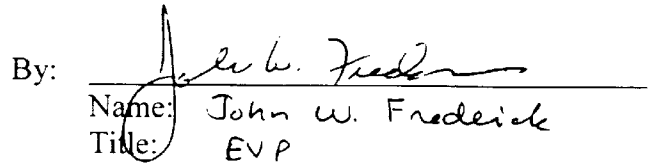 By: John W. Frederick
Name: John W. Frederick
Title: EVP